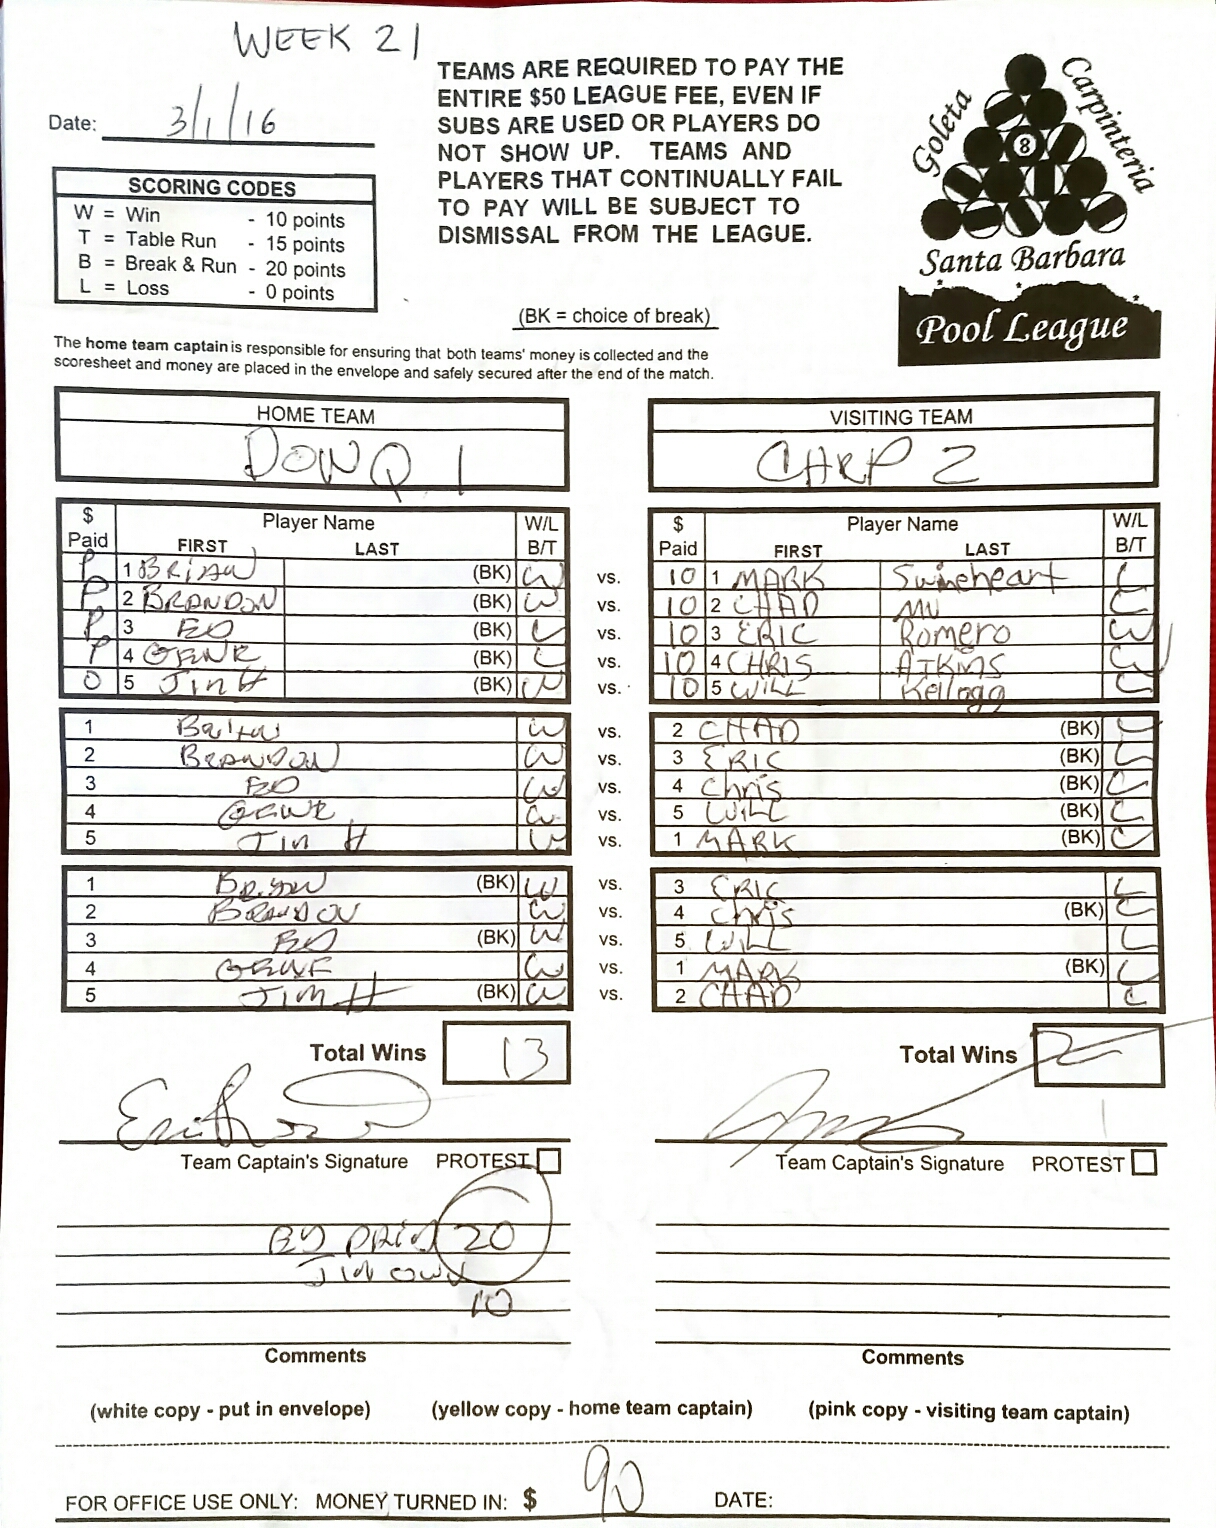 WEEK 21
Date: 3/1/16
TEAMS ARE REQUIRED TO PAY THE
ENTIRE $50 LEAGUE FEE, EVEN IF
SUBS ARE USED OR PLAYERS DO
NOT SHOW UP. TEAMS AND
PLAYERS THAT CONTINUALLY FAIL
TO PAY WILL BE SUBJECT TO
DISMISSAL FROM THE LEAGUE.
Goleta
Carpinteria
8
Santa Barbara
Pool League
SCORING CODES
W = Win - 10 points
T = Table Run - 15 points
B = Break & Run - 20 points
L = Loss - 0 points
(BK = choice of break)
The home team captain is responsible for ensuring that both teams' money is collected and the
scoresheet and money are placed in the envelope and safely secured after the end of the match.
HOME TEAM
DON Q 1
VISITING TEAM
CARP 2
$ Paid Player Name FIRST LAST W/L B/T
$ Paid Player Name FIRST LAST W/L B/T
P 1 BRIAN (BK) W vs. 10 1 MARK Swineheart L
P 2 BRANDON (BK) W vs. 10 2 CHAD L
P 3 ED (BK) L vs. 10 3 ERIC Romero W
P 4 GENE (BK) L vs. 10 4 CHRIS ATKINS W
0 5 JIM H (BK) W vs. 10 5 WILL Kellogg L
1 BRIAN W vs. 2 CHAD (BK) L
2 BRANDON W vs. 3 ERIC (BK) L
3 ED W vs. 4 Chris (BK) L
4 GENE W vs. 5 WILL (BK) L
5 JIM H W vs. 1 MARK (BK) L
1 BRIAN (BK) W vs. 3 ERIC L
2 BRANDON W vs. 4 Chris (BK) L
3 ED (BK) W vs. 5 WILL L
4 GENE W vs. 1 MARK (BK) L
5 JIM H (BK) W vs. 2 CHAD L
Total Wins 13
Total Wins 2
Team Captain's Signature PROTEST
Team Captain's Signature PROTEST
ED PAID 20
JIM OWN
10
Comments
Comments
(white copy - put in envelope) (yellow copy - home team captain) (pink copy - visiting team captain)
FOR OFFICE USE ONLY: MONEY TURNED IN: $ 90 DATE: